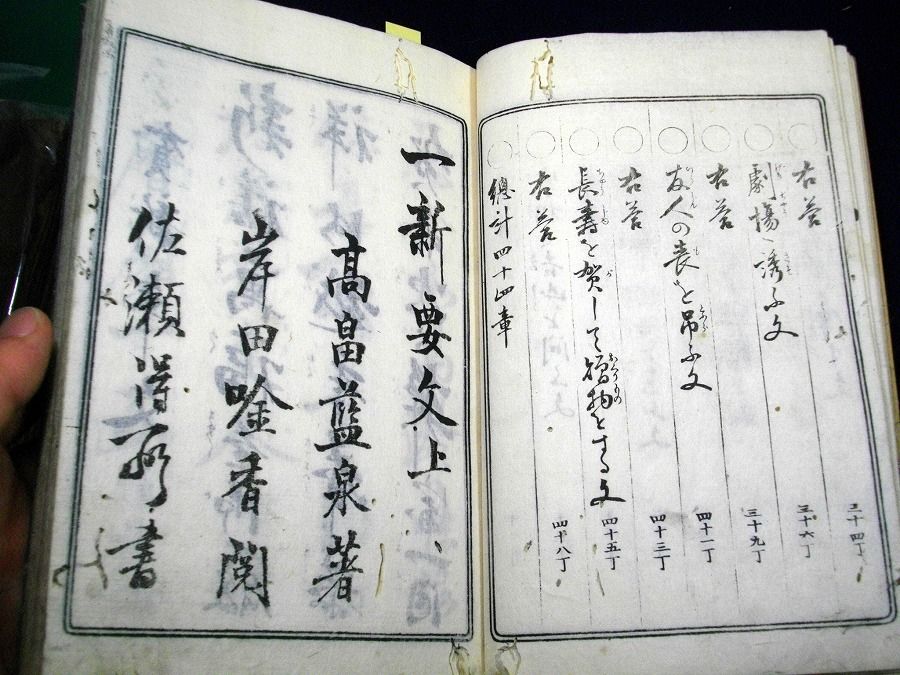 右答 三十四丁
劇場へ誘ふ文 三十六丁
右答 三十九丁
友人の喪を吊ふ文 四十一丁
右答 四十三丁
長壽を賀して贈物をする文 四十五丁
右答 四十八丁
總計四十四章
一新要文上
高畠藍泉著
岸田唫香閲
佐瀬得所書